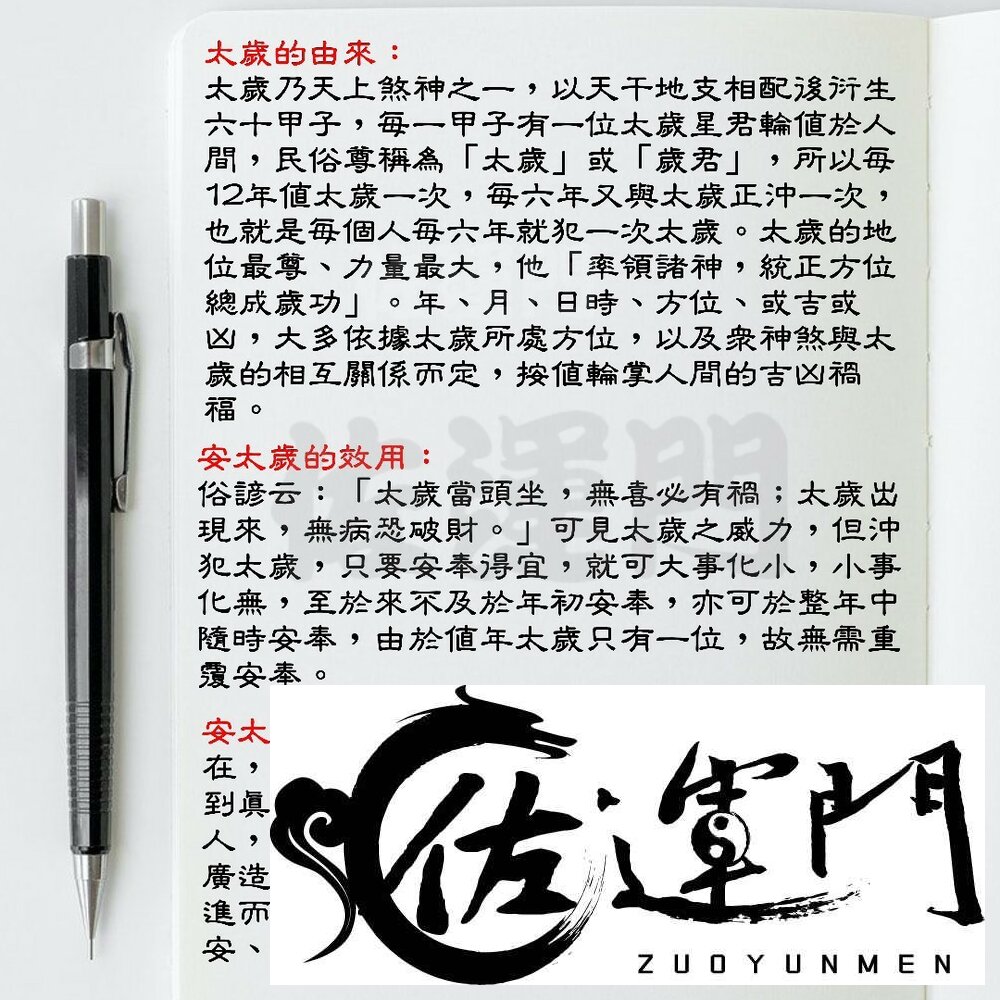 太歲的由來：
太歲乃天上煞神之一，以天干地支相配後衍生
六十甲子，每一甲子有一位太歲星君輪值於人
間，民俗尊稱為「太歲」或「歲君」，所以每
12年值太歲一次，每六年又與太歲正沖一次，
也就是每個人每六年就犯一次太歲。太歲的地
位最尊、力量最大，他「率領諸神，統正方位
總成歲功」。年、月、日時、方位、或吉或
凶，大多依據太歲所處方位，以及眾神煞與太
歲的相互關係而定，按值輪掌人間的吉凶禍
福。
佐運門
安太歲的效用：
俗諺云：「太歲當頭坐，無喜必有禍；太歲出
現來，無病恐破財。」可見太歲之威力，但沖
犯太歲，只要安奉得宜，就可大事化小，小事
化無，至於來不及於年初安奉，亦可於整年中
隨時安奉，由於值年太歲只有一位，故無需重
覆安奉。
安太
在，
到真
人，
廣造
進而
安、
佐運門
ZUOYUNMEN